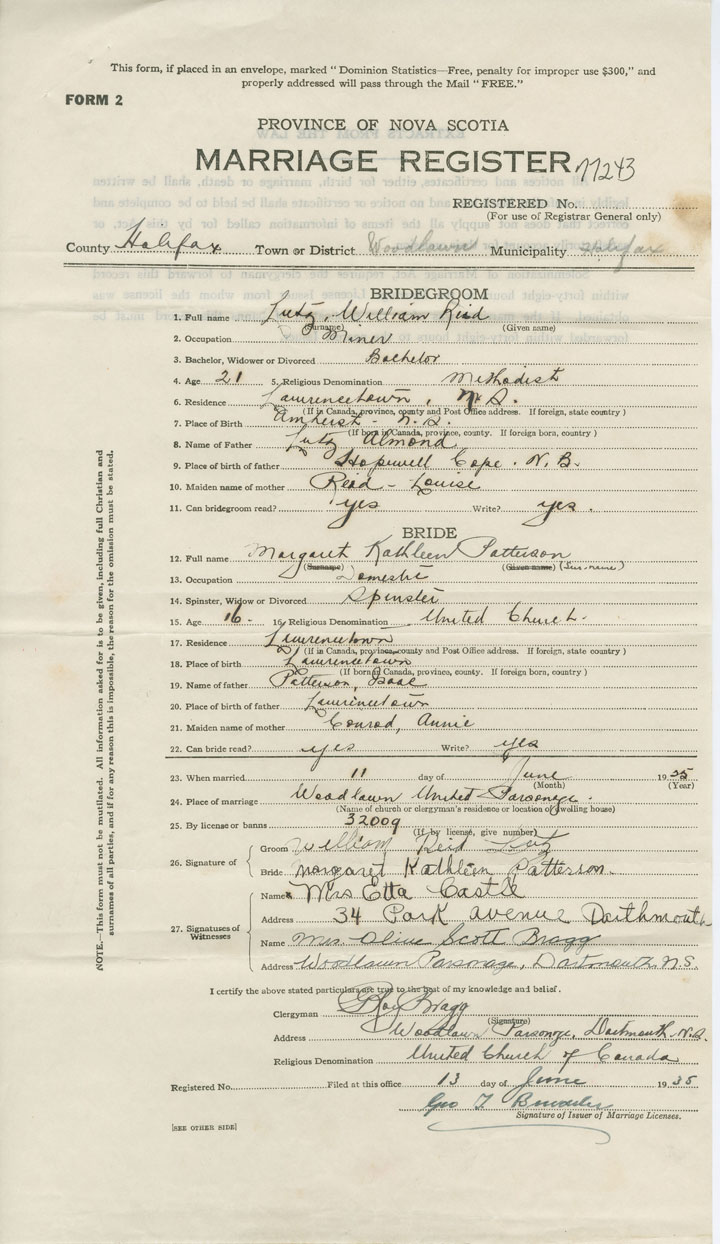 This form, if placed in an envelope, marked "Dominion Statistics—Free, penalty for improper use $300," and
properly addressed will pass through the Mail "FREE."
FORM 2
PROVINCE OF NOVA SCOTIA
MARRIAGE REGISTER
77243
REGISTERED No.
(For use of Registrar General only)
County Halifax Town or District Woodlawn Municipality Halifax
BRIDEGROOM
1. Full name Lutz, William Reid
(Surname) (Given name)
2. Occupation Miner
3. Bachelor, Widower or Divorced Bachelor
4. Age 21 5. Religious Denomination Methodist
6. Residence Lawrencetown, N.S.
(If in Canada, province, county and Post Office address. If foreign, state country)
7. Place of Birth Amherst - N.S.
(If born in Canada, province, county. If foreign born, country)
8. Name of Father Lutz Almond
9. Place of birth of father Hopewell Cape. N.B.
10. Maiden name of mother Reid - Louise
11. Can bridegroom read? yes Write? yes.
BRIDE
12. Full name Margaret Kathleen Patterson
(Surname) (Given name) (Surname)
13. Occupation Domestic
14. Spinster, Widow or Divorced Spinster
15. Age 16. 16. Religious Denomination United Church.
17. Residence Lawrencetown
(If in Canada, province, county and Post Office address. If foreign, state country)
18. Place of birth Lawrencetown
(If born in Canada, province, county. If foreign born, country)
19. Name of father Patterson, Isaac
20. Place of birth of father Lawrencetown
21. Maiden name of mother Conrad, Annie
22. Can bride read? yes Write? yes
23. When married 11 day of June 1935
(Month) (Year)
24. Place of marriage Woodlawn United Parsonage.
(Name of church or clergyman's residence or location of dwelling house)
25. By license or banns 32009
(If by license, give number)
26. Signature of
Groom William Reid Lutz
Bride Margaret Kathleen Patterson.
27. Signatures of Witnesses
Name Mrs Etta Castle
Address 34 Park avenue Darthmouth
Name Mrs. Olive Scott Bragg
Address Woodlawn Parsonage, Dartmouth, N.S.
I certify the above stated particulars are true to the best of my knowledge and belief.
Clergyman Roy Bragg
(Signature)
Address Woodlawn Parsonage, Dartmouth. N.S.
Religious Denomination United Church of Canada
Registered No. Filed at this office 13 day of June 1935
Geo T.
Signature of Issuer of Marriage Licenses.
[SEE OTHER SIDE]
NOTE.—This form must not be mutilated. All information asked for is to be given, including full Christian and
surnames of all parties, and if for any reason this is impossible, the reason for the omission must be stated.